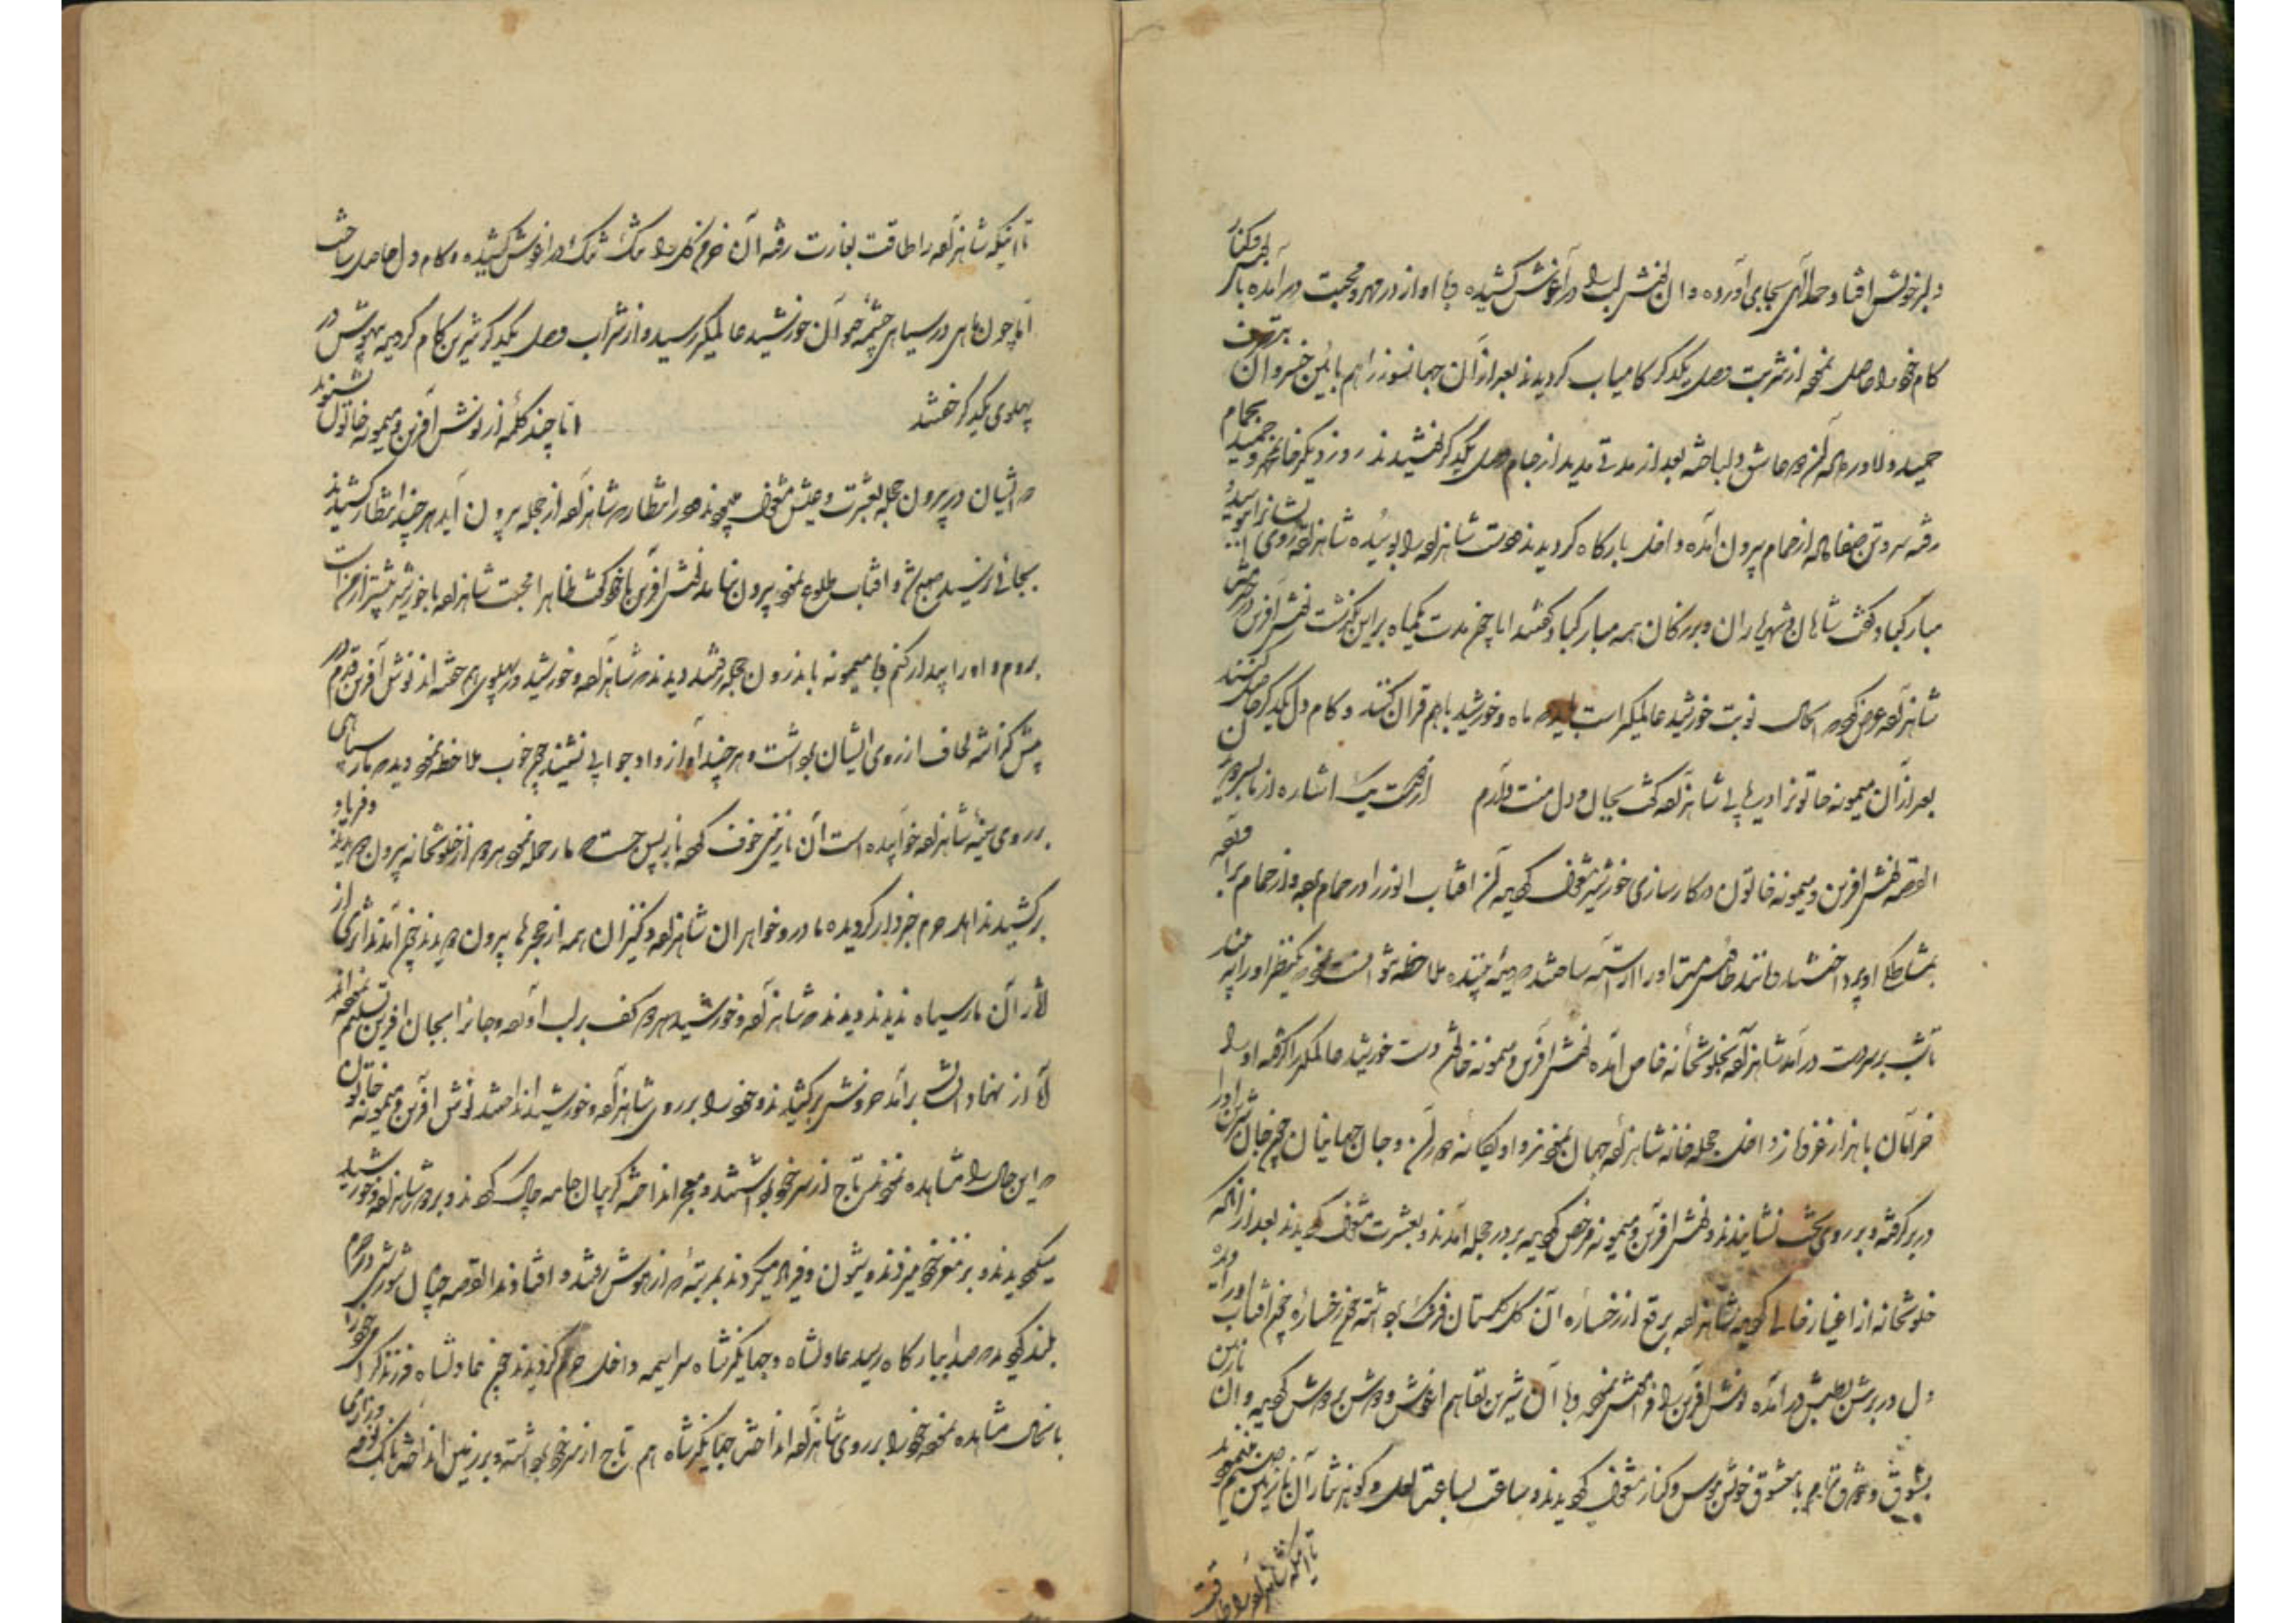 دلبر خویش افتاد حمد الهی بجای آورده و آن را در آغوش کشیده با او از در مهر و محبت در آمده بوس و کنار
کام خود را حاصل نموده از شربت وصل یکدیگر کامیاب کردیدند بعد از آن جهانسوز را هم بآئین خسروان
حمید و لاور که آن دو عاشق دلباخته بعد از مدتی مدید از جام وصل یکدیگر نوشیدند روز دیگر بحمام
رفته سر و تن صفا داده از حمام بیرون آمده داخل بارگاه کردیدند دست شاهزاده را بوسیده شاهزاده روی ایشانرا بوسیده
مبارکباد گفت شاهان و شهریاران و بزرگان همه مبارکباد گفتند اما چون مدت یکماه بر این بگذشت نوش آفرین در خدمت
شاهزاده عرض کرد که الحال نوبت خورشید عالمگیر است باید که ماه و خورشید باهم قران کنند و کام دل یکدیگر حاصل کنند
بعد از آن میمونه خاتون شاهزاده گفت بجان و دل منت دارم از تو یک اشاره از ما بسر دویدن
القصه نوش آفرین و میمونه خاتون در کارسازی خورشید مشغول کردیده آن آفتاب انور را در حمام برده و از حمام برآورده
بمشاطگی او پرداختند مانند طاوس مست او را آراسته ساختند که دیده بیننده ملاحظه
تا شب بر سر دست در آمد شاهزاده بخلوتخانه خاص آمده نوش آفرین و میمونه خاتون دست خورشید عالمگیر را گرفته او را
خرامان با هزار غمزه و ناز داخل حجله خانه شاهزاده جهان نمودند و او یگانه دوران و جان جهانیان چون جان شیرین او را
در بر گرفته و بر روی تخت نشاندند و نوش آفرین و میمونه مرخص گردیده بر در حجله آمدند و بعشرت مشغول گردیدند بعد از آنکه
خلوتخانه از اغیار خالی گردید شاهزاده برقع از رخساره آن گل گلستان برداشته چون رخساره چون آفتاب او را دید
دل در برش بطپش در آمده نوش آفرین را فراموش نموده با آن شیرین لقا هم آغوش و دوش بر دوش گردیده و آن نازنین
بشوق و ذوق تمام با معشوق خویش ببوس و کنار مشغول گردیدند و ساعت بساعت لعل و گوهر نثار آن نازنین صنم مینمود
تا اینکه شاهزاده را طاقت
تا اینکه شاهزاده را طاقت بغارت رفته آن خرمن گل را تنگ تنگ در آغوش کشیده و کام دل حاصل ساخت
اما چون ماهی در سیاهی چشمه حیوان خورشید عالمگیر رسید و از شراب وصل یکدیگر شیرین کام گردیده بیهوش در
پهلوی یکدیگر خفتند اما چند کلمه از نوش آفرین و میمونه خاتون بشنوید
که ایشان در بیرون حجله بعشرت و عیش مشغول میبودند و در انتظار که شاهزاده از حجله بیرون آید هر چند انتظار کشیدند
بجائی نرسید صبح شد و آفتاب طلوع نمود بیرون نیامدند نوش آفرین با خود گفت ظاهرا محبت شاهزاده با خورشید بیشتر از من است
بروم و او را بیدار کنم با میمونه باندرون حجله رفتند دیدند که شاهزاده و خورشید در پهلوی هم خفته اند نوش آفرین قدم در
پیش گذاشته لحاف از روی ایشان برداشت و هر چند آواز داد جوابی نشنید چون خوب ملاحظه نمود دید که مار سیاهی
بر روی سینه شاهزاده خوابیده است آن نازنین خوف کرده باز پس جست که مار حمله نمود هر دو از خلوتخانه بیرون دویدند و فریاد
بر کشیدند اهل حرم خبردار گردیده مادر و خواهران شاهزاده و کنیزان همه از حجره ها بیرون دویدند چون آمدند اثری از
آن مار سیاه ندیدند دیدند که شاهزاده و خورشید هر دو کف بر لب آورده و جانرا بجان آفرین تسلیم نموده اند
آه از نهاد ایشان برآمد خروش برکشیدند و خود را بر روی شاهزاده و خورشید انداختند نوش آفرین و میمونه خاتون
که این حال را مشاهده نمودند تاج از سر خود برداشتند و معجر انداخته گریبان جامه چاک کردند و بر دور شاهزاده و خورشید
میگردیدند و بر مغز خود میزدند و شیون و فریاد میکردند بمرتبه که از هوش رفتند و افتادند القصه چنان شورشی در حرم
بلند گردید که صدا ببارگاه رسید عادلشاه و جهانگیر شاه سراسیمه داخل حرم گردیدند چون عادلشاه فرزند گرامی خود را
بآنحال مشاهده نمود خود را بر روی شاهزاده انداخت جهانگیر شاه هم تاج از سر خود برداشته و بر زمین انداخت